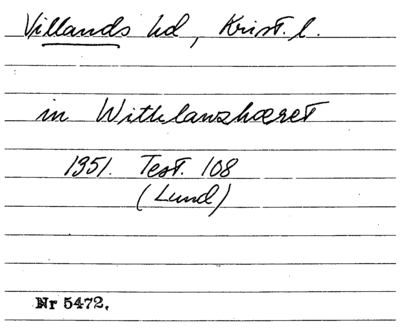 Villands hd, Krist. l.
in Withlanzhæret
1351. Test. 108
(Lund)
Nr 5472.